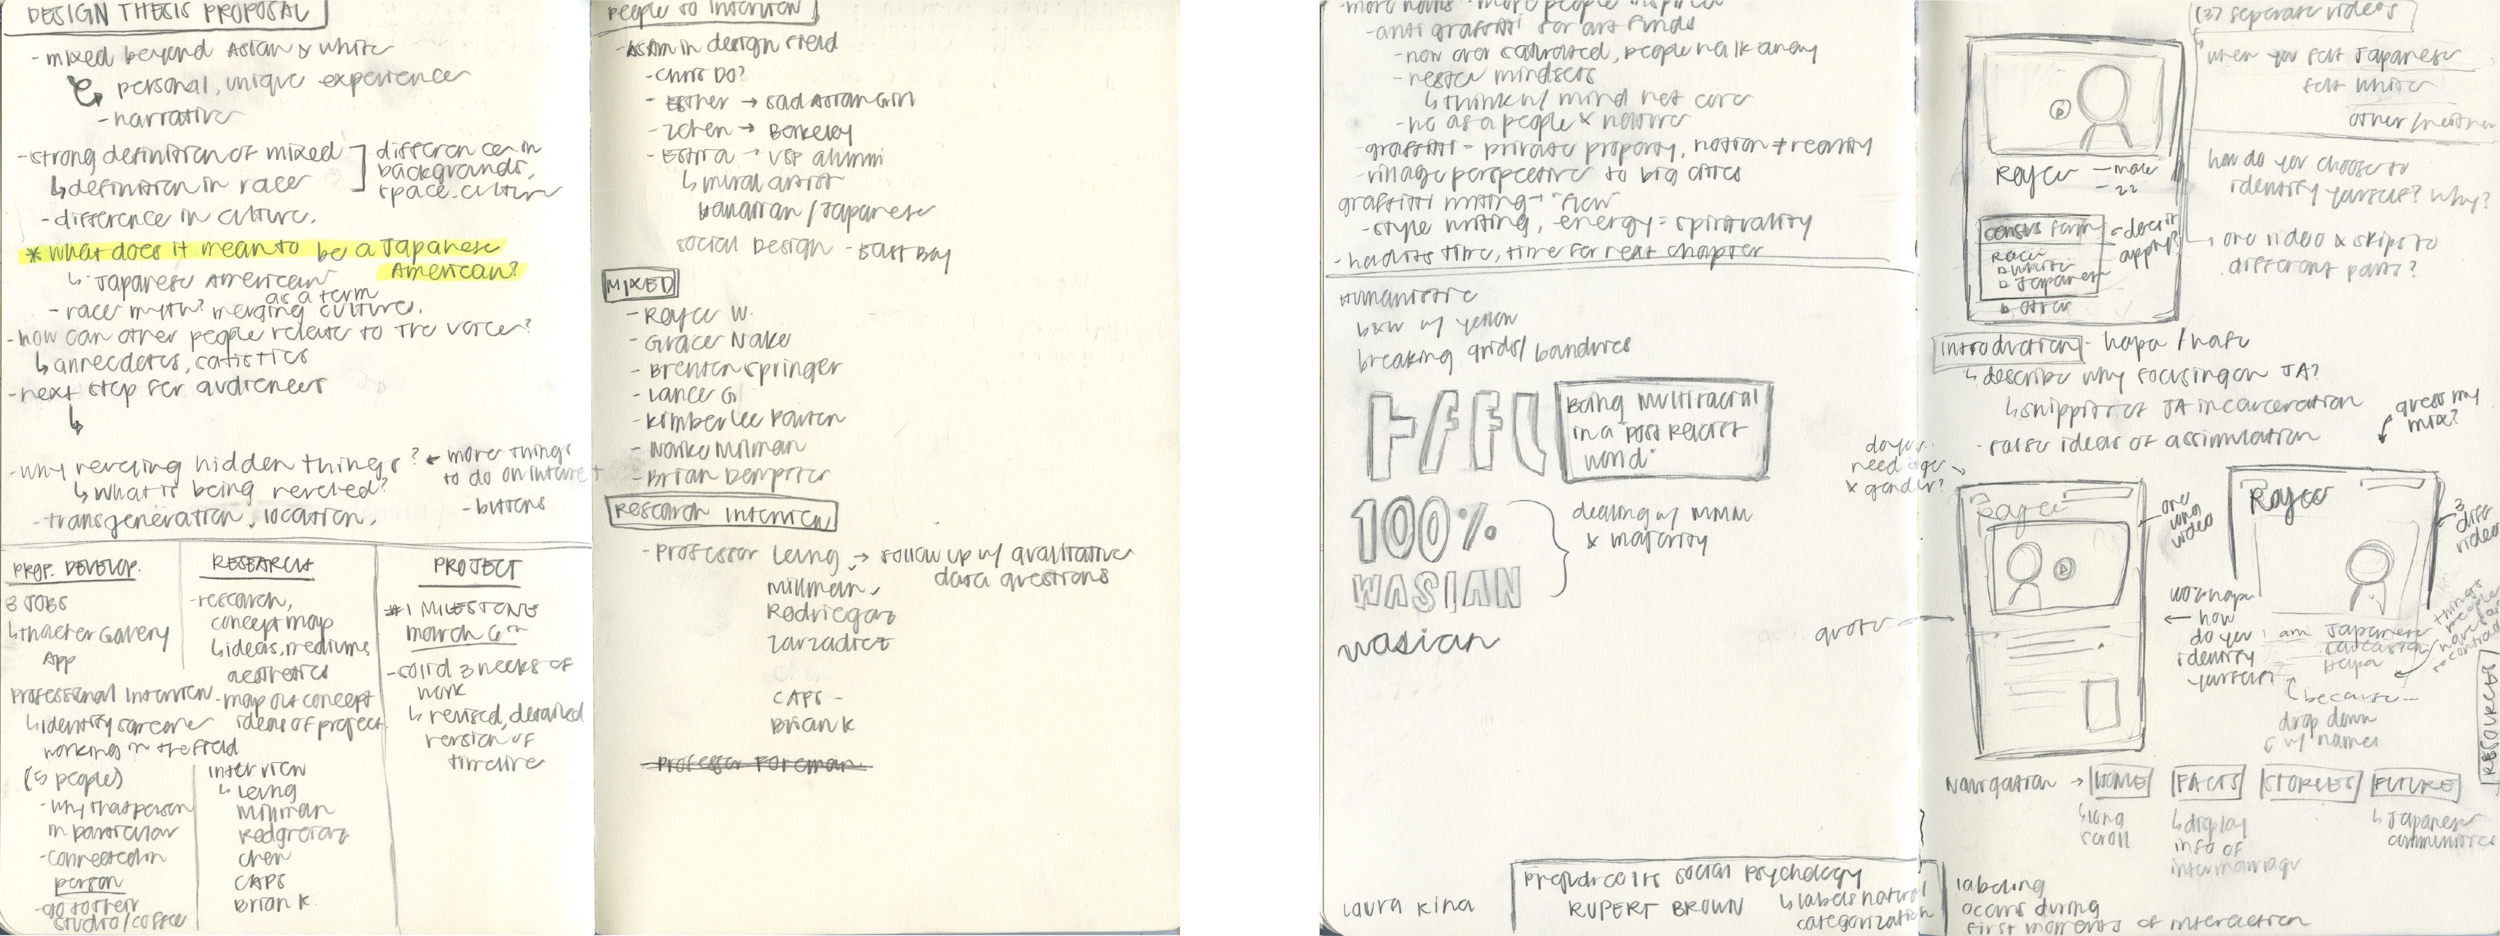 DESIGN THESIS PROPOSAL
- mixed beyond Asian & white
↳ personal, unique experience
- narrative
- strong definition of mixed
↳ definition in race
differences in
backgrounds,
space. culture
- difference in culture.
* what does it mean to be a Japanese
American?
↳ Japanese American
as a term
- race myth? merging culture.
- how can other people relate to the voice?
↳ annecdotes, satistics
- next step for audiences
↳
- why reveling hidden things?
↳ what is being reveled?
← more things
to do on internet
- buttons
- transgeneration, location,
PROF. DEVELOP.
3 JOBS
↳ thacher Gallery
App
Professional Interview
↳ identify someone
working in the field
(5 people)
- why that person
in particular
- connected in
person
- go to their
studio/coffee
RESEARCH
- research,
concept map
↳ ideas, mediums,
aesthetics
- map out concept
ideas of project
interview
↳ Leung
Millman
chen
CAPS
Brian K.
PROJECT
#1 MILESTONE
March 6th
- solid 3 weeks of
work
↳ revised, detailed
version of
timeline
People to Interview
- AsAm in design field
- Chris Do?
- Esther → Sad Asian Girl
- Zchen → Berkeley
→ USF alumni
↳ mural artist
/ Japanese
Social Design - East Bay
MIXED
- Royce W.
- Grace Nako
- Brenten Springer
- Lance G
- Kimberlee
- Millman
- Brian Dempster
Research Interview
- Professor Leung → follow up w/ qualitative
data questions
Millman
CAPS -
Brian K
- Professor Foreman
- anti graffiti for art funds
- now over saturated, people walk away
mindsets
↳ think w/ mind not core
- we as a people & nature
- graffiti = private property, notion ≠ reality
- village perspective to big cities
graffiti writing → "flow"
- style writing, energy = spirituality
time, time for next chapter
Humanistic
b&w w/ yellow
breaking grids/
Being Multiracial
in a "post racist
world"
100%
WASIAN
wasian
dealing w/ MMM
& majority
Laura Kina
Prejudice Its Social Psychology
RUPERT BROWN
↳ labels natural
categorization
(3) separate videos
when you felt Japanese
felt white
other/neither
Royce
- male
- 22
census form
Race
□ White
□ Japanese
□ other
- does it
apply?
how do you choose to
identify yourself? why?
↳ one video & skips to
different parts?
introduction - hapa / hafu
↳ describe why focusing on JA?
↳ snippits of JA incarceration
- raise ideas of assimilation
guess my
mix?
do you
need age
& gender?
Royce
one
long
video
quote
← how
do you
identify
yourself
Royce
3
diff
video
I am Japanese
Hapa
because...
drop down
w/ names
RESOURCES
Navigation → HOME FACTS STORIES FUTURE
↳ long
scroll
↳ display
info of
intermarriage
↳ Japanese
communities
labeling
occurs during
first moments of interaction